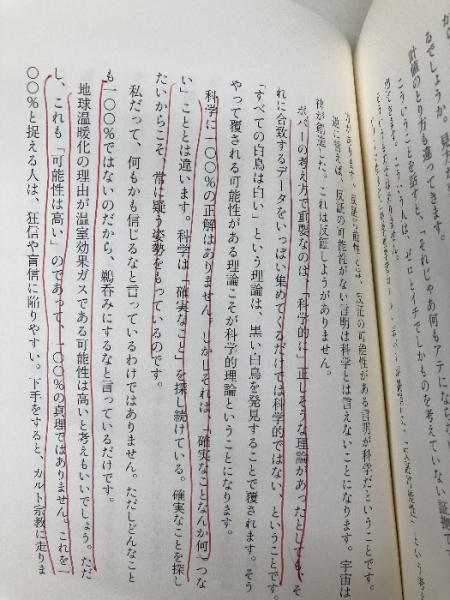 るでしょうか。見方が
計値のとり方も違ってきます。
こういうことを話すと、「それじゃあ何もアテにならな
ます。こういう人は、ゼロとイチでしかものを考えていない証拠で
反証の可能性がある言明が科学だということになります。
逆に言えば、反証の可能性がない言明は科学とは言えないことになります。宇宙は
神が創造した。これは反証しようがありません。
ポパーの考え方で重要なのは、「科学的に」正しそうな理論があったとしても、そ
れに合致するデータをいっぱい集めてくるだけでは科学的ではない、ということです。
「すべての白鳥は白い」という理論は、黒い白鳥を発見することで覆されます。そう
やって覆される可能性がある理論こそが科学的理論ということになります。
科学に一〇〇％の正解はありません。しかしそれは、「確実なことなんか何一つな
い」こととは違います。科学は「確実なこと」を探し続けている。確実なことを探し
たいからこそ、常に疑う姿勢をもっているのです。
私だって、何もかも信じるなと言っているわけではありません。ただしどんなこと
も一〇〇％ではないのだから、鵜呑みにするなと言っているだけです。
地球温暖化の理由が温室効果ガスである可能性は高いと考えもいいでしょう。ただ
し、これも「可能性は高い」のであって、一〇〇％の真理ではありません。これを一
〇〇％と捉える人は、狂信や盲信に陥りやすい。下手をすると、カルト宗教に走りま